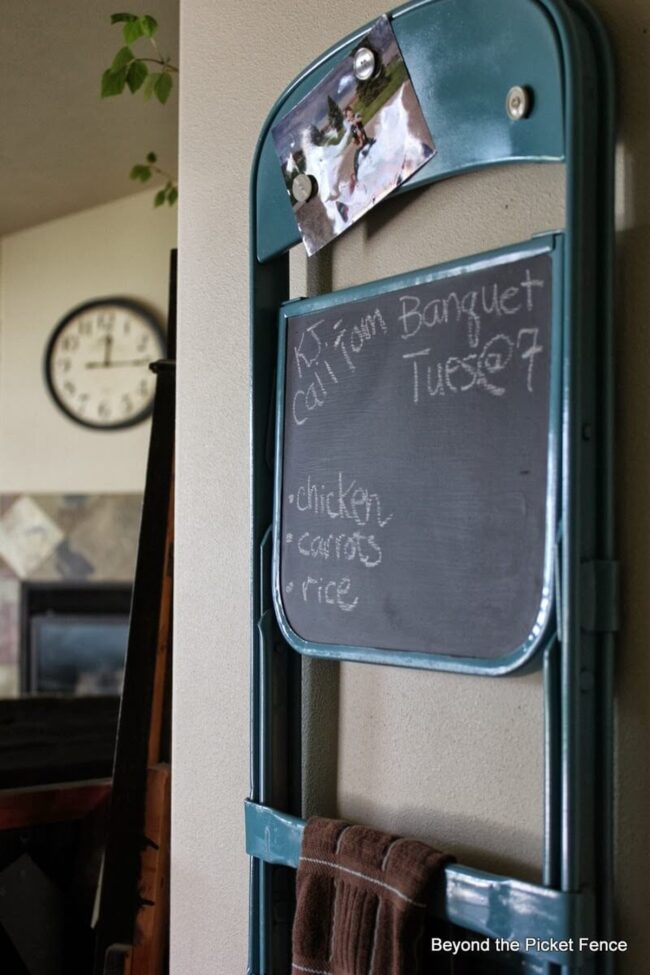 KJ.
call Tom
Banquet
Tues@7
•chicken
•carrots
•rice
Beyond the Picket Fence